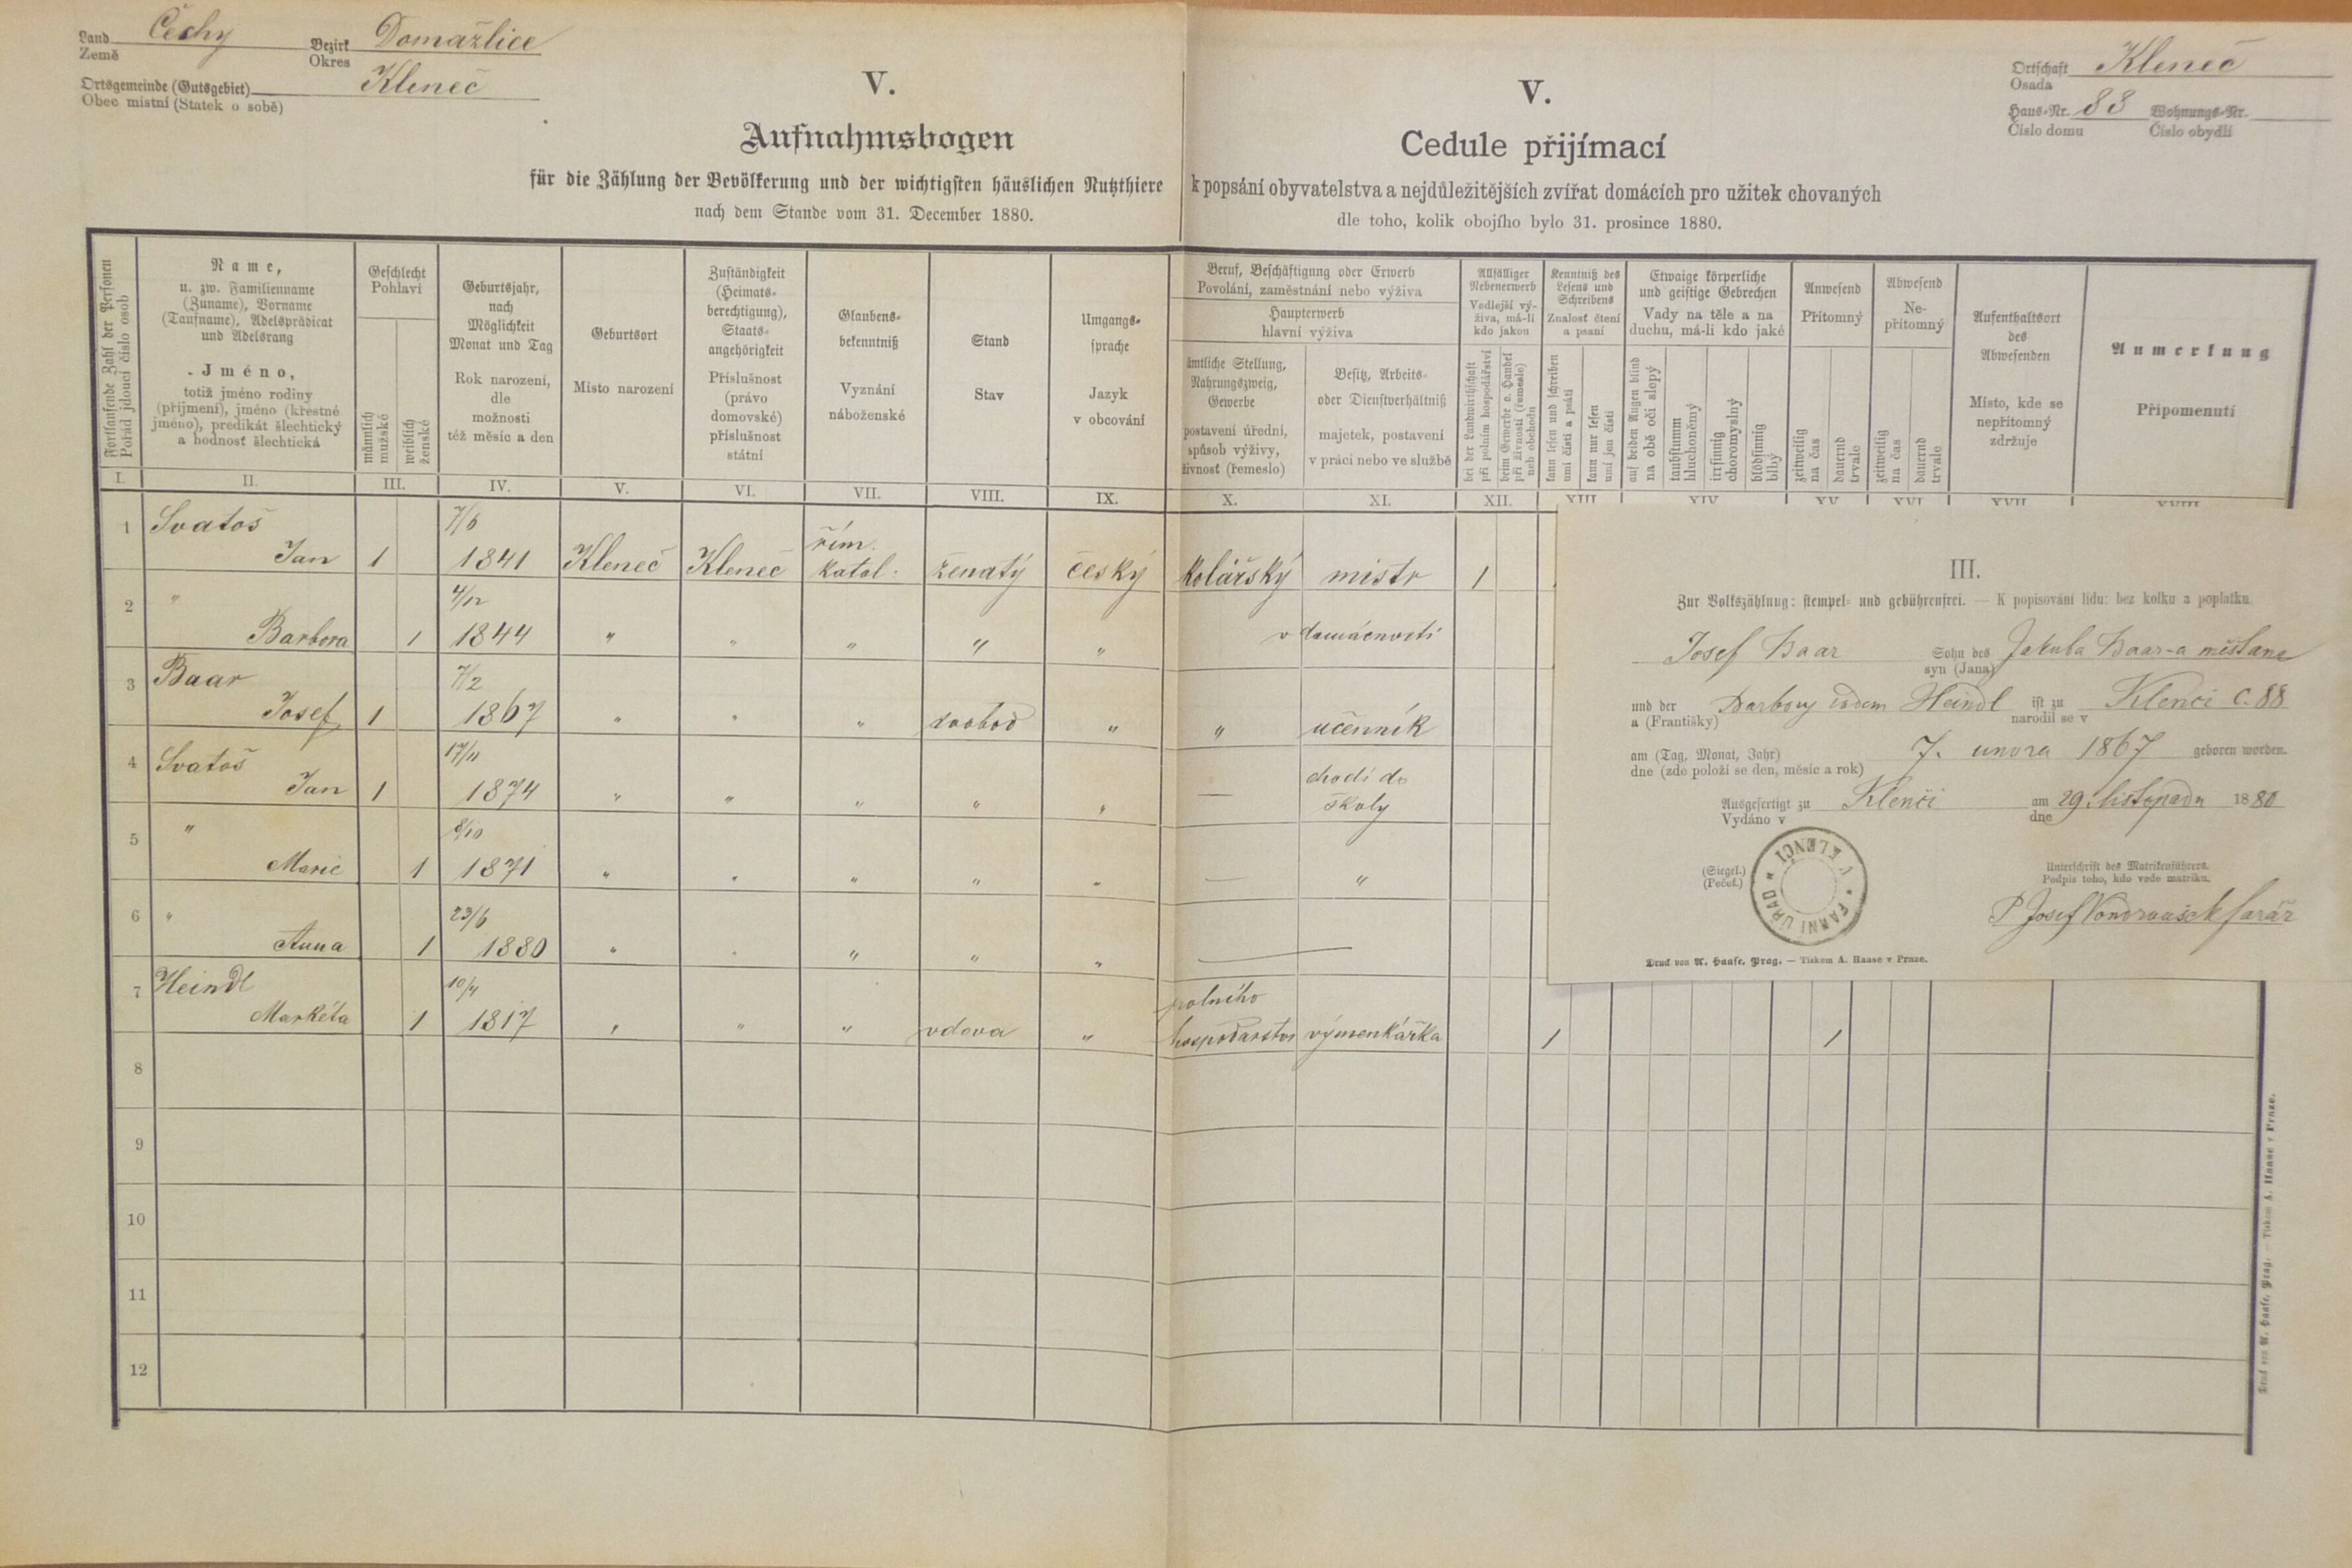 Land Čechy Bezirk Domažlice
Země Okres
Ortsgemeinde (Gutsgebiet) Kleneč
Obec místní (Statek o sobě)
V.
Aufnahmsbogen
für die Zählung der Bevölkerung und der wichtigsten häuslichen Nutzthiere
nach dem Stande vom 31. December 1880.
V.
Cedule přijímací
k popsání obyvatelstva a nejdůležitějších zvířat domácích pro užitek chovaných
dle toho, kolik obojího bylo 31. prosince 1880.
Ortschaft Kleneč
Osada
Haus-Nr. 88 Wohnungs-Nr.
Číslo domu Číslo obydlí
Fortlaufende Zahl der Personen
Pořád jdoucí číslo osob
Name,
u. zw. Familienname
(Zuname), Vorname
(Taufname), Adelsprädicat
und Adelsrang
Jméno,
totiž jméno rodiny
(příjmení), jméno (křestné
jméno), predikát šlechtický
a hodnosť šlechtická
Geschlecht
Pohlaví
männlich
mužské
weiblich
ženské
Geburtsjahr,
nach
Möglichkeit
Monat und Tag
Rok narození,
dle
možnosti
též měsíc a den
Geburtsort
Místo narození
Zuständigkeit
(Heimats-
berechtigung),
Staats-
angehörigkeit
Příslušnost
(právo
domovské)
příslušnost
státní
Glaubens-
bekenntniß
Vyznání
náboženské
Stand
Stav
Umgangs-
sprache
Jazyk
v obcování
Beruf, Beschäftigung oder Erwerb
Povolání, zaměstnání nebo výživa
Haupterwerb
hlavní výživa
ämtliche Stellung,
Nahrungszweig,
Gewerbe
postavení úřední,
způsob výživy,
živnosť (řemeslo)
Besitz, Arbeits-
oder Dienstverhältniß
majetek, postavení
v práci nebo ve službě
Allfälliger
Nebenerwerb
Vedlejší vý-
živa, má-li
kdo jakou
bei der Landwirthschaft
při polním hospodářství
beim Gewerbe o. Handel
při živnosti (řemesle)
neb obchodu
Kenntniß des
Lesens und
Schreibens
Znalosť čtení
a psaní
kann lesen und schreiben
umí čísti a psáti
kann nur lesen
umí jen čísti
Etwaige körperliche
und geistige Gebrechen
Vady na těle a na
duchu, má-li kdo jaké
auf beiden Augen blind
na obě oči slepý
taubstumm
hluchoněmý
irrsinnig
choromyslný
blödsinnig
blbý
Anwesend
Přítomný
zeitweilig
na čas
dauernd
trvale
Abwesend
Ne-
přítomný
zeitweilig
na čas
dauernd
trvale
Aufenthaltsort
des
Abwesenden
Místo, kde se
nepřítomný
zdržuje
Anmerkung
Připomenutí
I. II. III. IV. V. VI. VII. VIII. IX. X. XI. XII. XIII XIV XV XVI XVII XVIII
1 Svatoš 7/6 řím.
Jan 1 1841 Kleneč Kleneč katol. ženatý český kolářský mistr 1
2 " 4/12
Barbora 1 1844 " " " " " v domácnosti
3 Baar 7/2
Josef 1 1867 " " " svobod " " učenník
4 Svatoš 17/11 chodí do
Jan 1 1874 " " " " " — školy
5 " 8/10
Marie 1 1871 " " " " " — "
6 " 23/6
Anna 1 1880 " " " " " —
7 Heindl 10/4 polního
Markéta 1 1817 " " " vdova " hospodářství výmenkářka 1 1
8
9
10
11
12
III.
Zur Volkszählung: stempel- und gebührenfrei. — K popisování lidu: bez kolku a poplatku.
Josef Baar Sohn des Jakuba Baar-a měšťana
syn (Jana)
und der Barbory Heindl ist zu Klenči č. 88
a (Františky) narodil se v
am (Tag, Monat, Jahr) 7. unora 1867 geboren worden.
dne (zde položí se den, měsíc a rok)
Ausgefertigt zu Klenči am 29. listopadu 1880
Vydáno v dne
(Siegel.)
(Pečeť.)
FARNÍ ÚŘAD * V KLENČI *
Unterschrift des Matrikenführers.
Podpis toho, kdo vede matriku.
P Josef Vondrašek farář
Druck von A. Haase, Prag. — Tiskem A. Haase v Praze.
Druck von A. Haase, Prag. — Tiskem A. Haase v Praze.